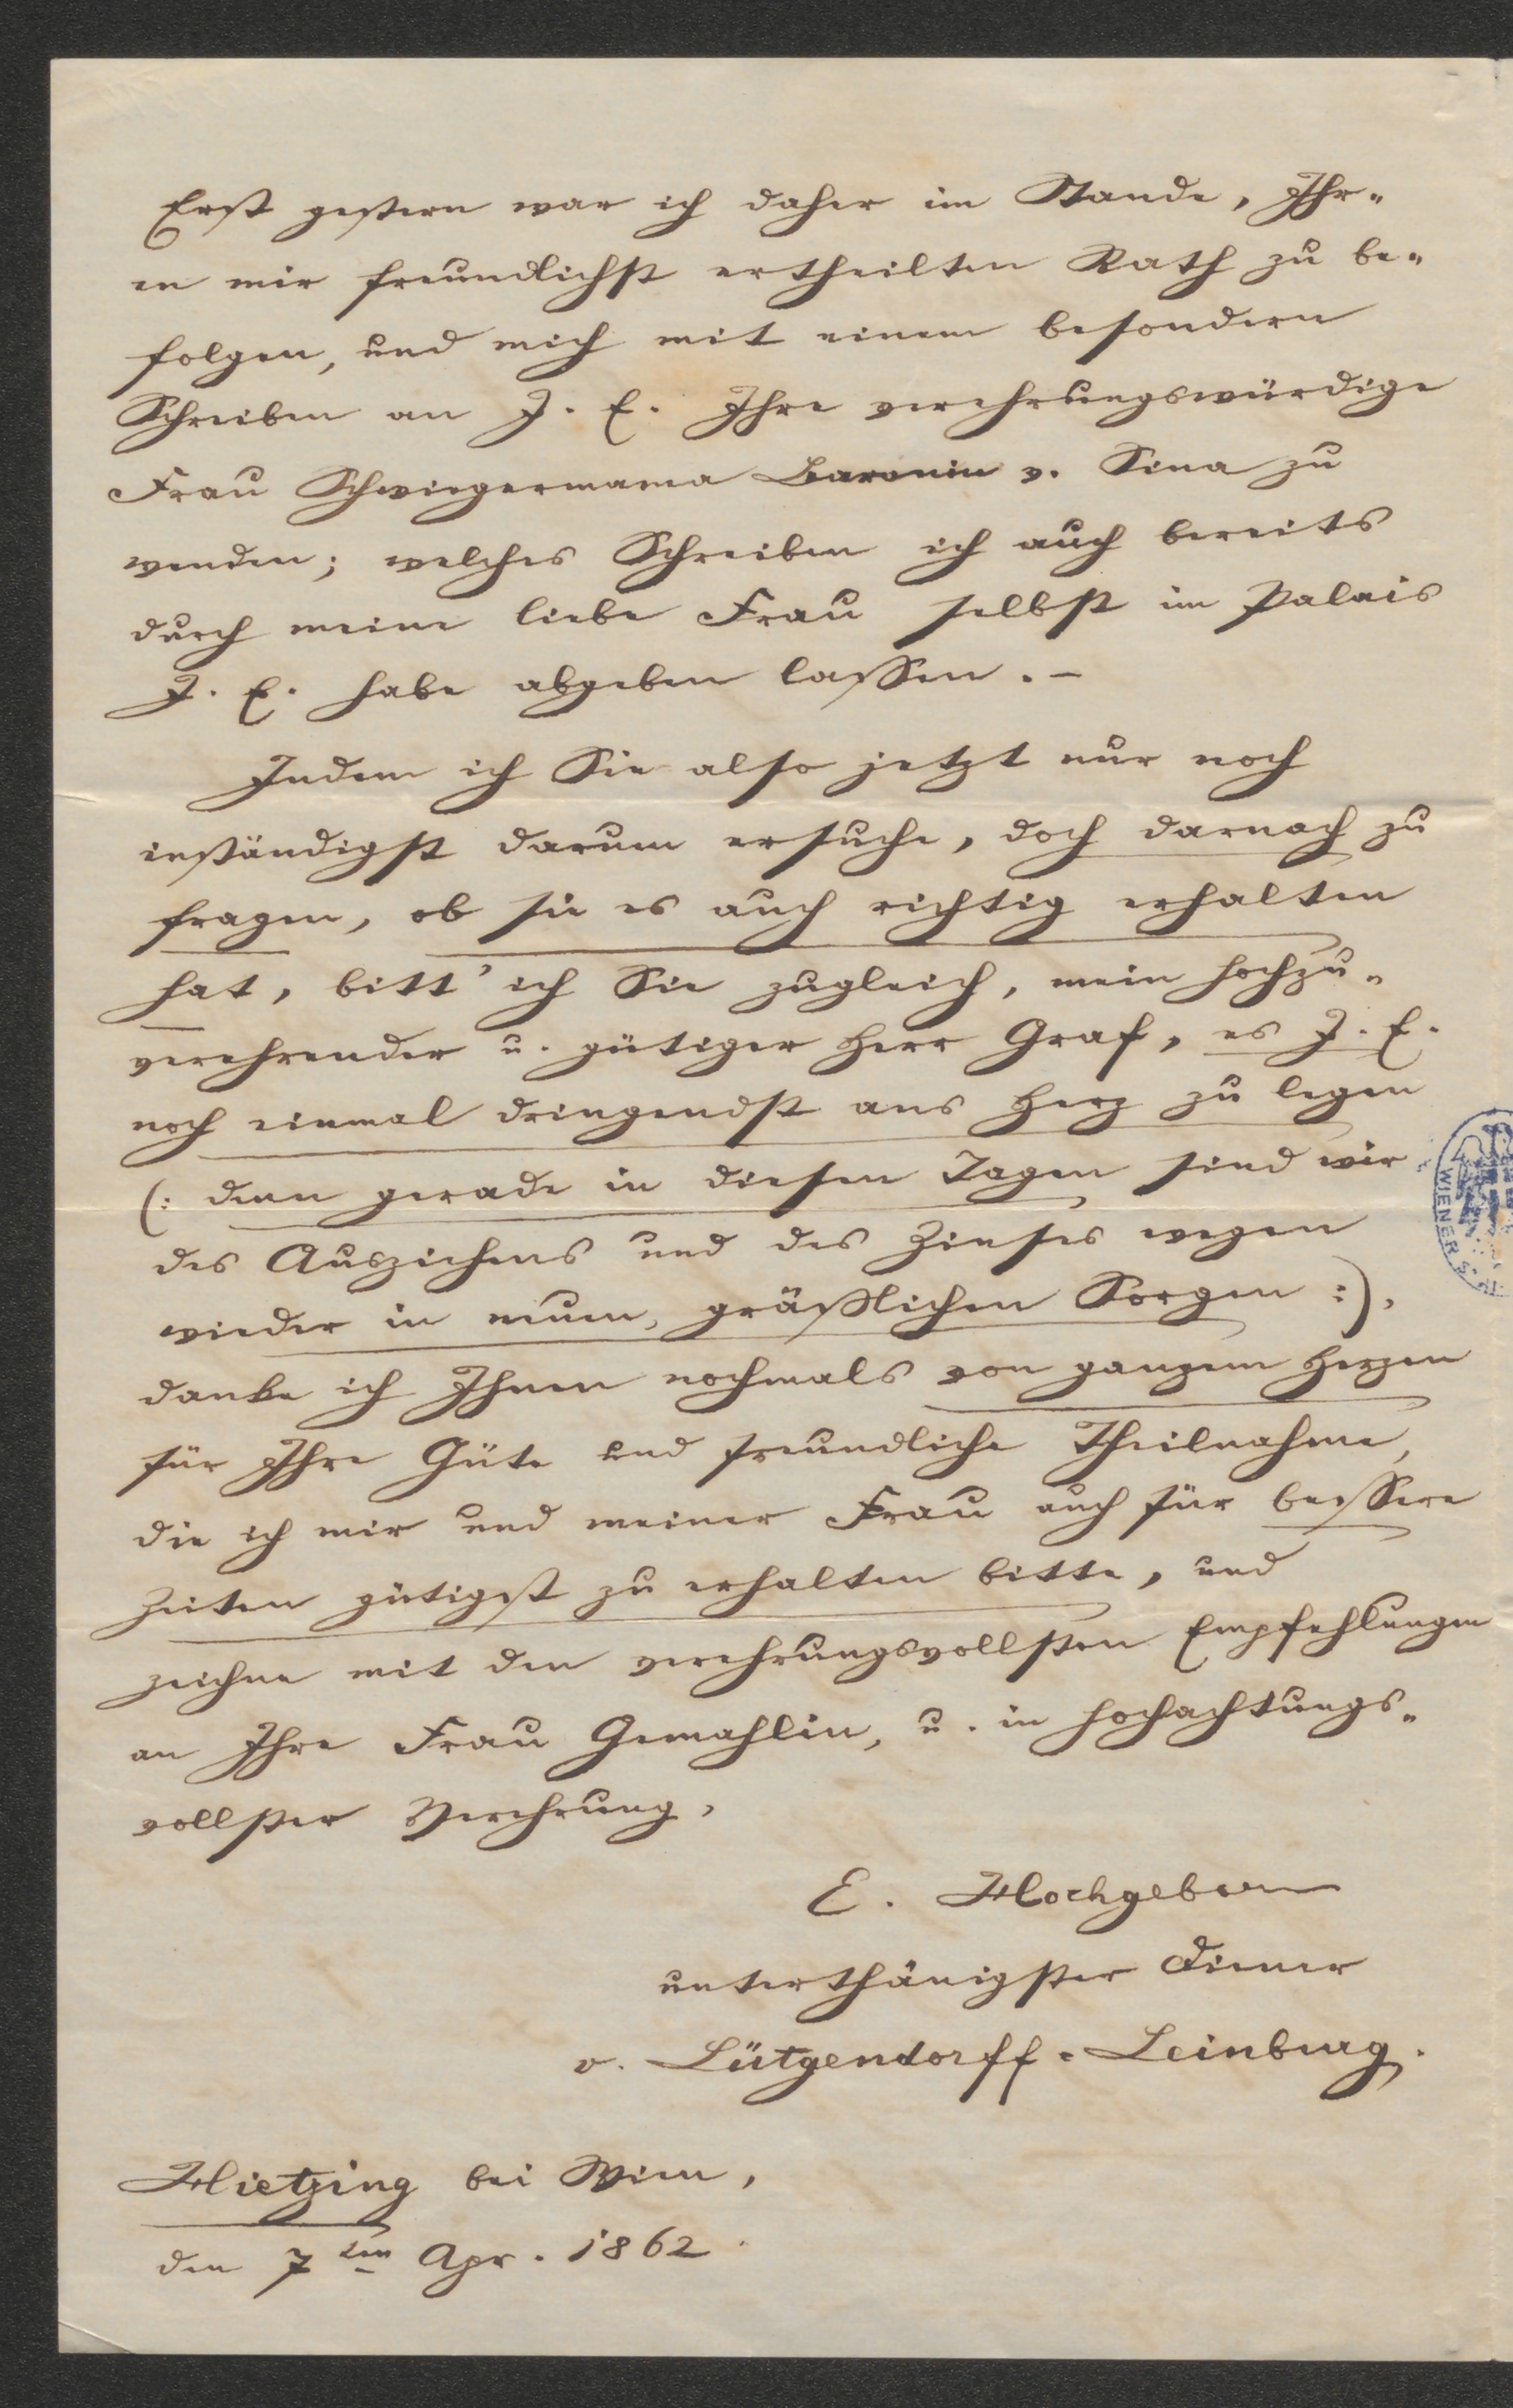 Erst gestern war ich daher im Stande, Ihr-
en mir freundlichst ertheilten Rath zu be-
folgen, und mich mit einem besondern
Schreiben an J. E. Ihre verehrungswürdige
Frau Schwiegermama Baronin v. Sina zu
wenden; welches Schreiben ich auch bereits
durch meine liebe Frau selbst im Palais
J. E. habe abgeben lassen. -
Indem ich Sie also jetzt nur noch
inständigst darum ersuche, doch darnach zu
fragen, ob sie es auch richtig erhalten
hat, bitt' ich Sie zugleich, mein hochzu-
verehrender u. gütiger Herr Graf, es J. E.
noch einmal dringendst ans Herz zu legen
(: denn gerade in diesen Tagen sind wir
des Ausziehens und des Zinses wegen
wieder in neuen, gräßlichen Sorgen :),
danke ich Ihnen nochmals von ganzem Herzen
für Ihre Güte und freundliche Theilnahme,
die ich mir und meiner Frau auch für bessere
Zeiten gütigst zu erhalten bitte, und
zeichne mit den verehrungsvollsten Empfehlungen
an Ihre Frau Gemahlin, u. in hochachtungs-
vollster Verehrung,
E. Hochgeborn
unterthänigster Diener
v. Lütgendorff-Leinburg.
Hietzing bei Wien,
den 7ten Apr. 1862.
WIENER